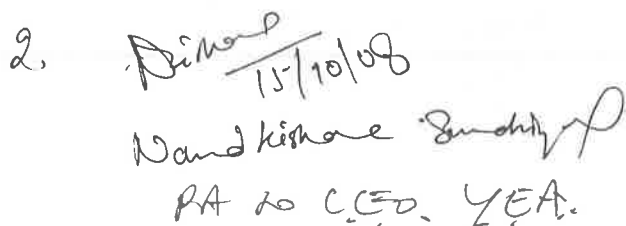 2.
15/10/08
Nandkishore Sundriyal
PA to C.E.O. YEA.